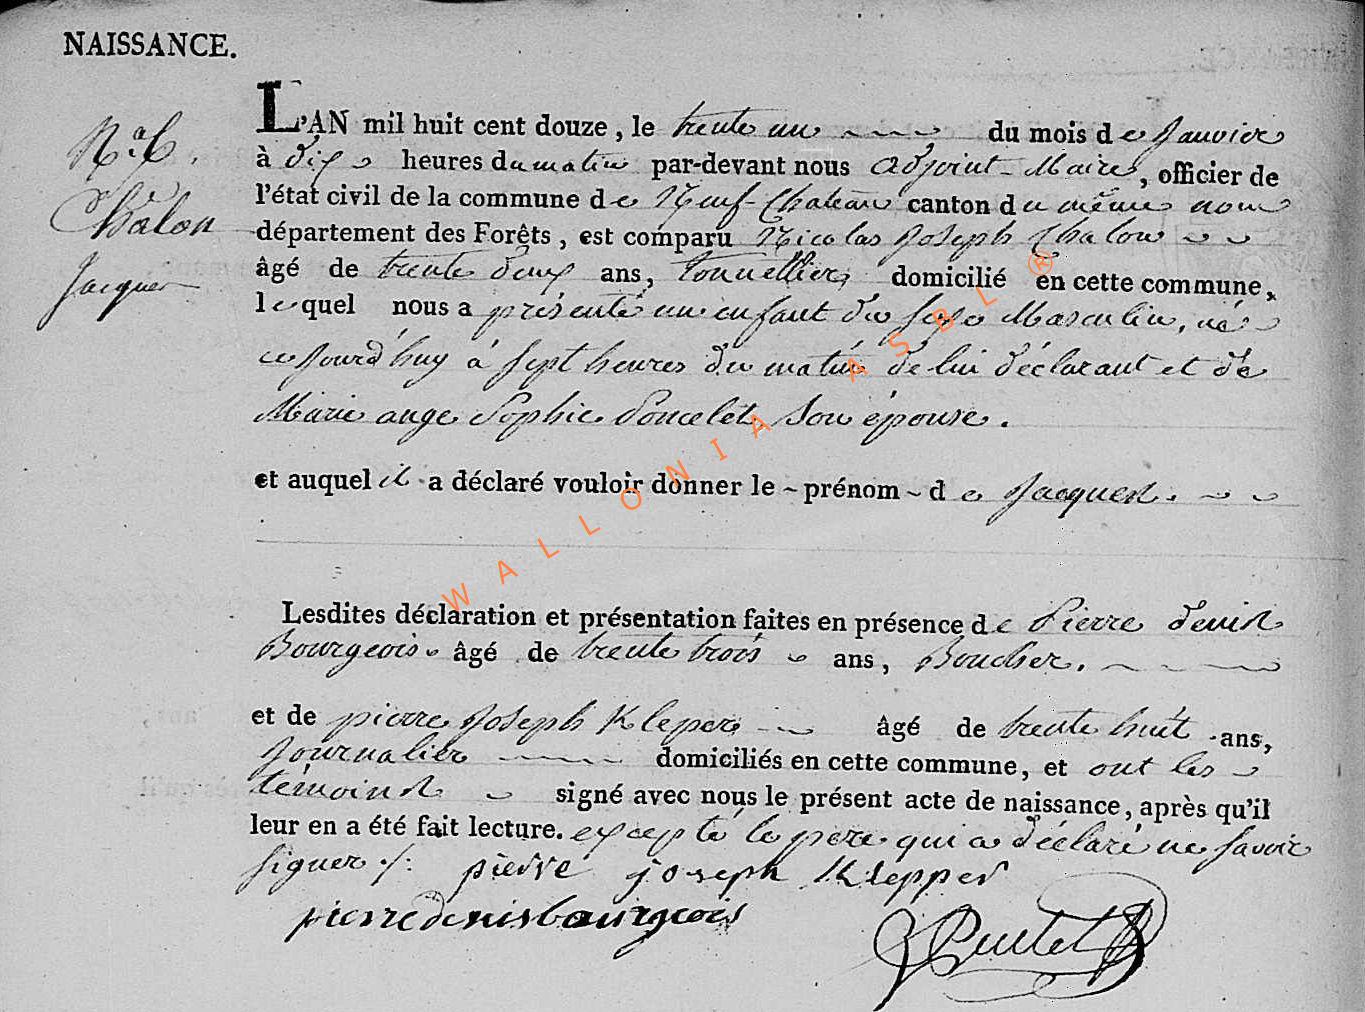 NAISSANCE.
N.º 6.
Chalon
Jacques
L'AN mil huit cent douze, le trente un du mois de Janvier
à dix heures du matin par-devant nous adjoint-Maire, officier de
l'état civil de la commune de Neuf-Chateau canton du même nom
département des Forêts, est comparu Nicolas Joseph Chalon
âgé de trente deux ans, tonnellier, domicilié en cette commune,
lequel nous a présenté un enfant du sexe Masculin, né
ce jourd'huy à sept heures du matin de lui déclarant et de
Marie ange Sophie Poncelet son épouse.
et auquel il a déclaré vouloir donner le prénom de Jacques.
Lesdites déclaration et présentation faites en présence de Pierre denis
Bourgeois âgé de trente trois ans, Boucher.
et de pierre Joseph Kleper âgé de trente huit ans,
Journalier domiciliés en cette commune, et ont les
témoins signé avec nous le présent acte de naissance, après qu'il
leur en a été fait lecture. excepté le pere qui a déclaré ne savoir
signer ./.
pierre joseph Klepper
pierre denis bourgeois
WALLONIA ASBL ®